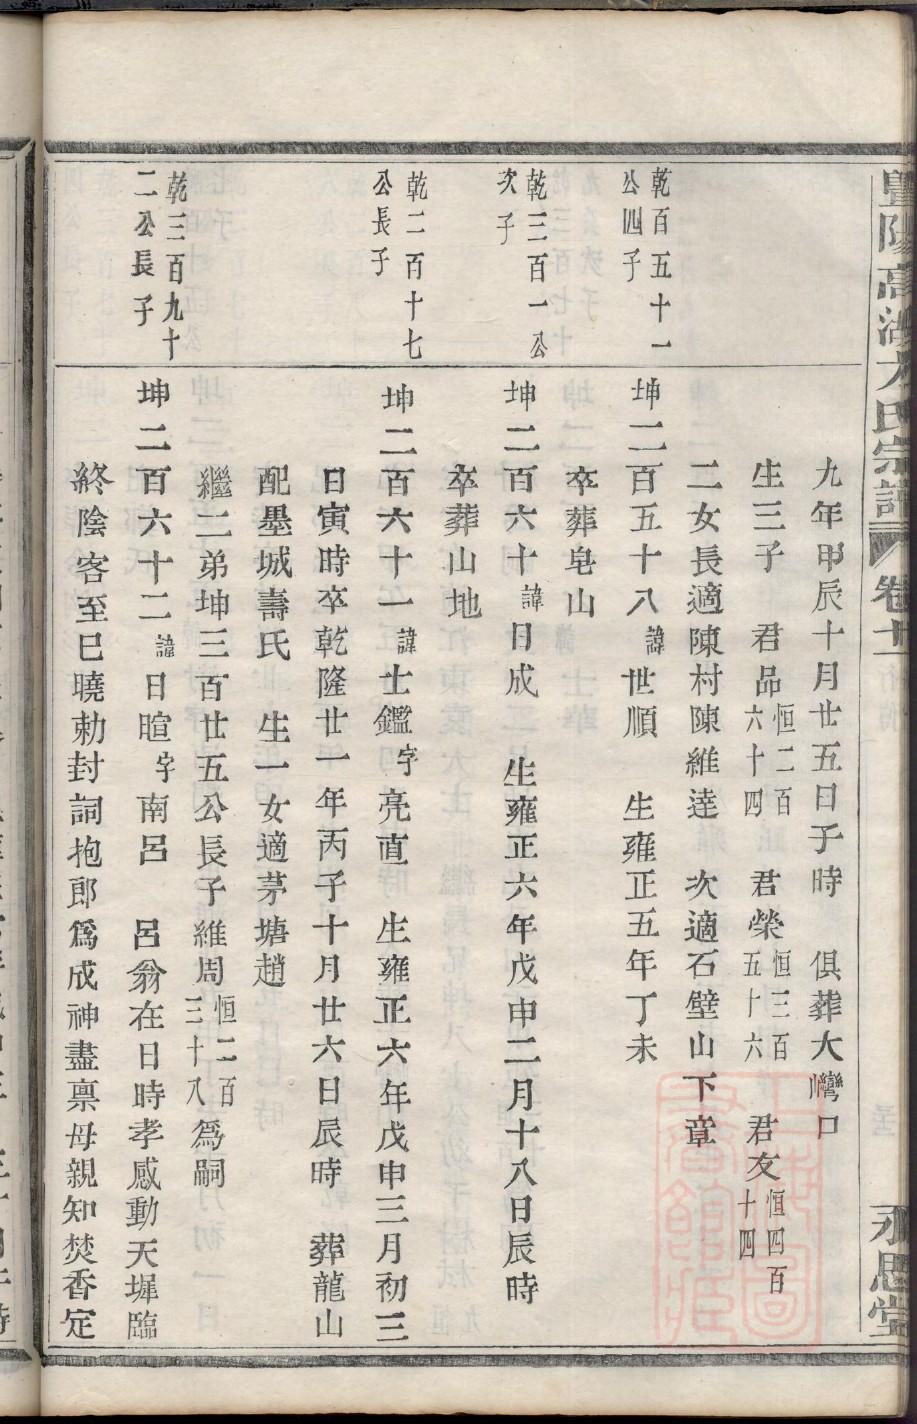 暨陽高湖方氏宗譜 卷十 永思堂
九年甲辰十月廿五日子時 俱葬大灣口
生三子 君品恒二百六十四 君榮恒三百五十六 君友恒四百十四
二女長適陳村陳維達 次適石壁山下章
乾百五十一公四子
坤二百五十八諱世順 生雍正五年丁未
卒葬皂山
乾三百一公次子
坤二百六十諱日成 生雍正六年戊申二月十八日辰時
卒葬山地
乾二百十七公長子
坤二百六十一諱士鑑字亮直 生雍正六年戊申三月初三
日寅時卒乾隆廿一年丙子十月廿六日辰時 葬龍山
配墨城壽氏 生一女適茅塘趙
繼二弟坤三百廿五公長子維周恒二百三十八為嗣
乾三百九十二公長子
坤二百六十二諱日暄字南呂 呂翁在日時孝感動天墀臨
終陰客至巳曉勅封詞抱郎為成神盡禀母親知焚香定